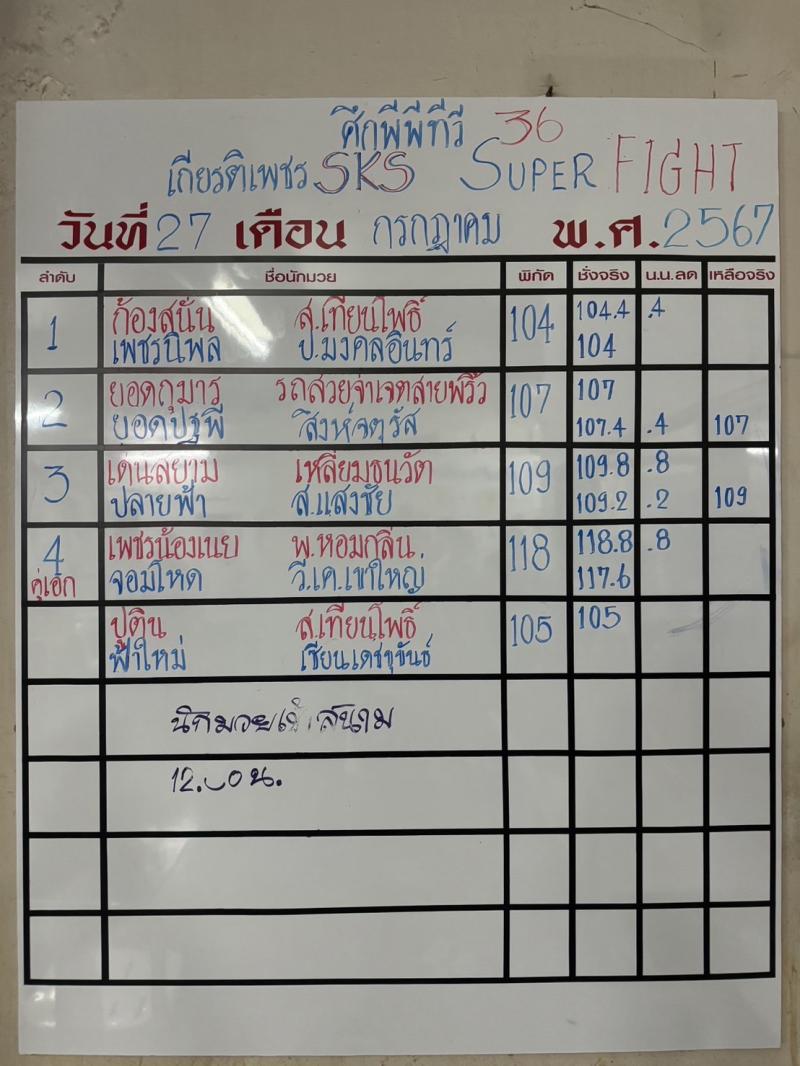 ศึกพีพีทีวี 36
เกียรติเพชร SKS SUPER FIGHT
วันที่ 27 เดือน กรกฎาคม พ.ศ. 2567
ลำดับ ชื่อนักมวย พิกัด ชั่งจริง น.น.ลด เหลือจริง
1 ก้องสนั่น ส.เทียนโพธิ์ 104 104.4 .4
เพชรนิพล ป.มงคลอินทร์ 104
2 ยอดกุมาร รถสวยจ่าเจตสายพริ้ว 107 107
ยอดปฐพี สิงห์จตุรัส 107.4 .4 107
3 เด่นสยาม เหลี่ยมธนวัต 109 109.8 .8
ปลายฟ้า ส.แสงชัย 109.2 .2 109
4 เพชรน้องเนย พ.หอมกลิ่น 118 118.8 .8
คู่เอก จอมโหด วี.เค.เขาใหญ่ 117.6
ปูติน ส.เทียนโพธิ์ 105 105
ฟ้าใหม่ เซียนเดชขุขันธ์
นักมวย สนาม